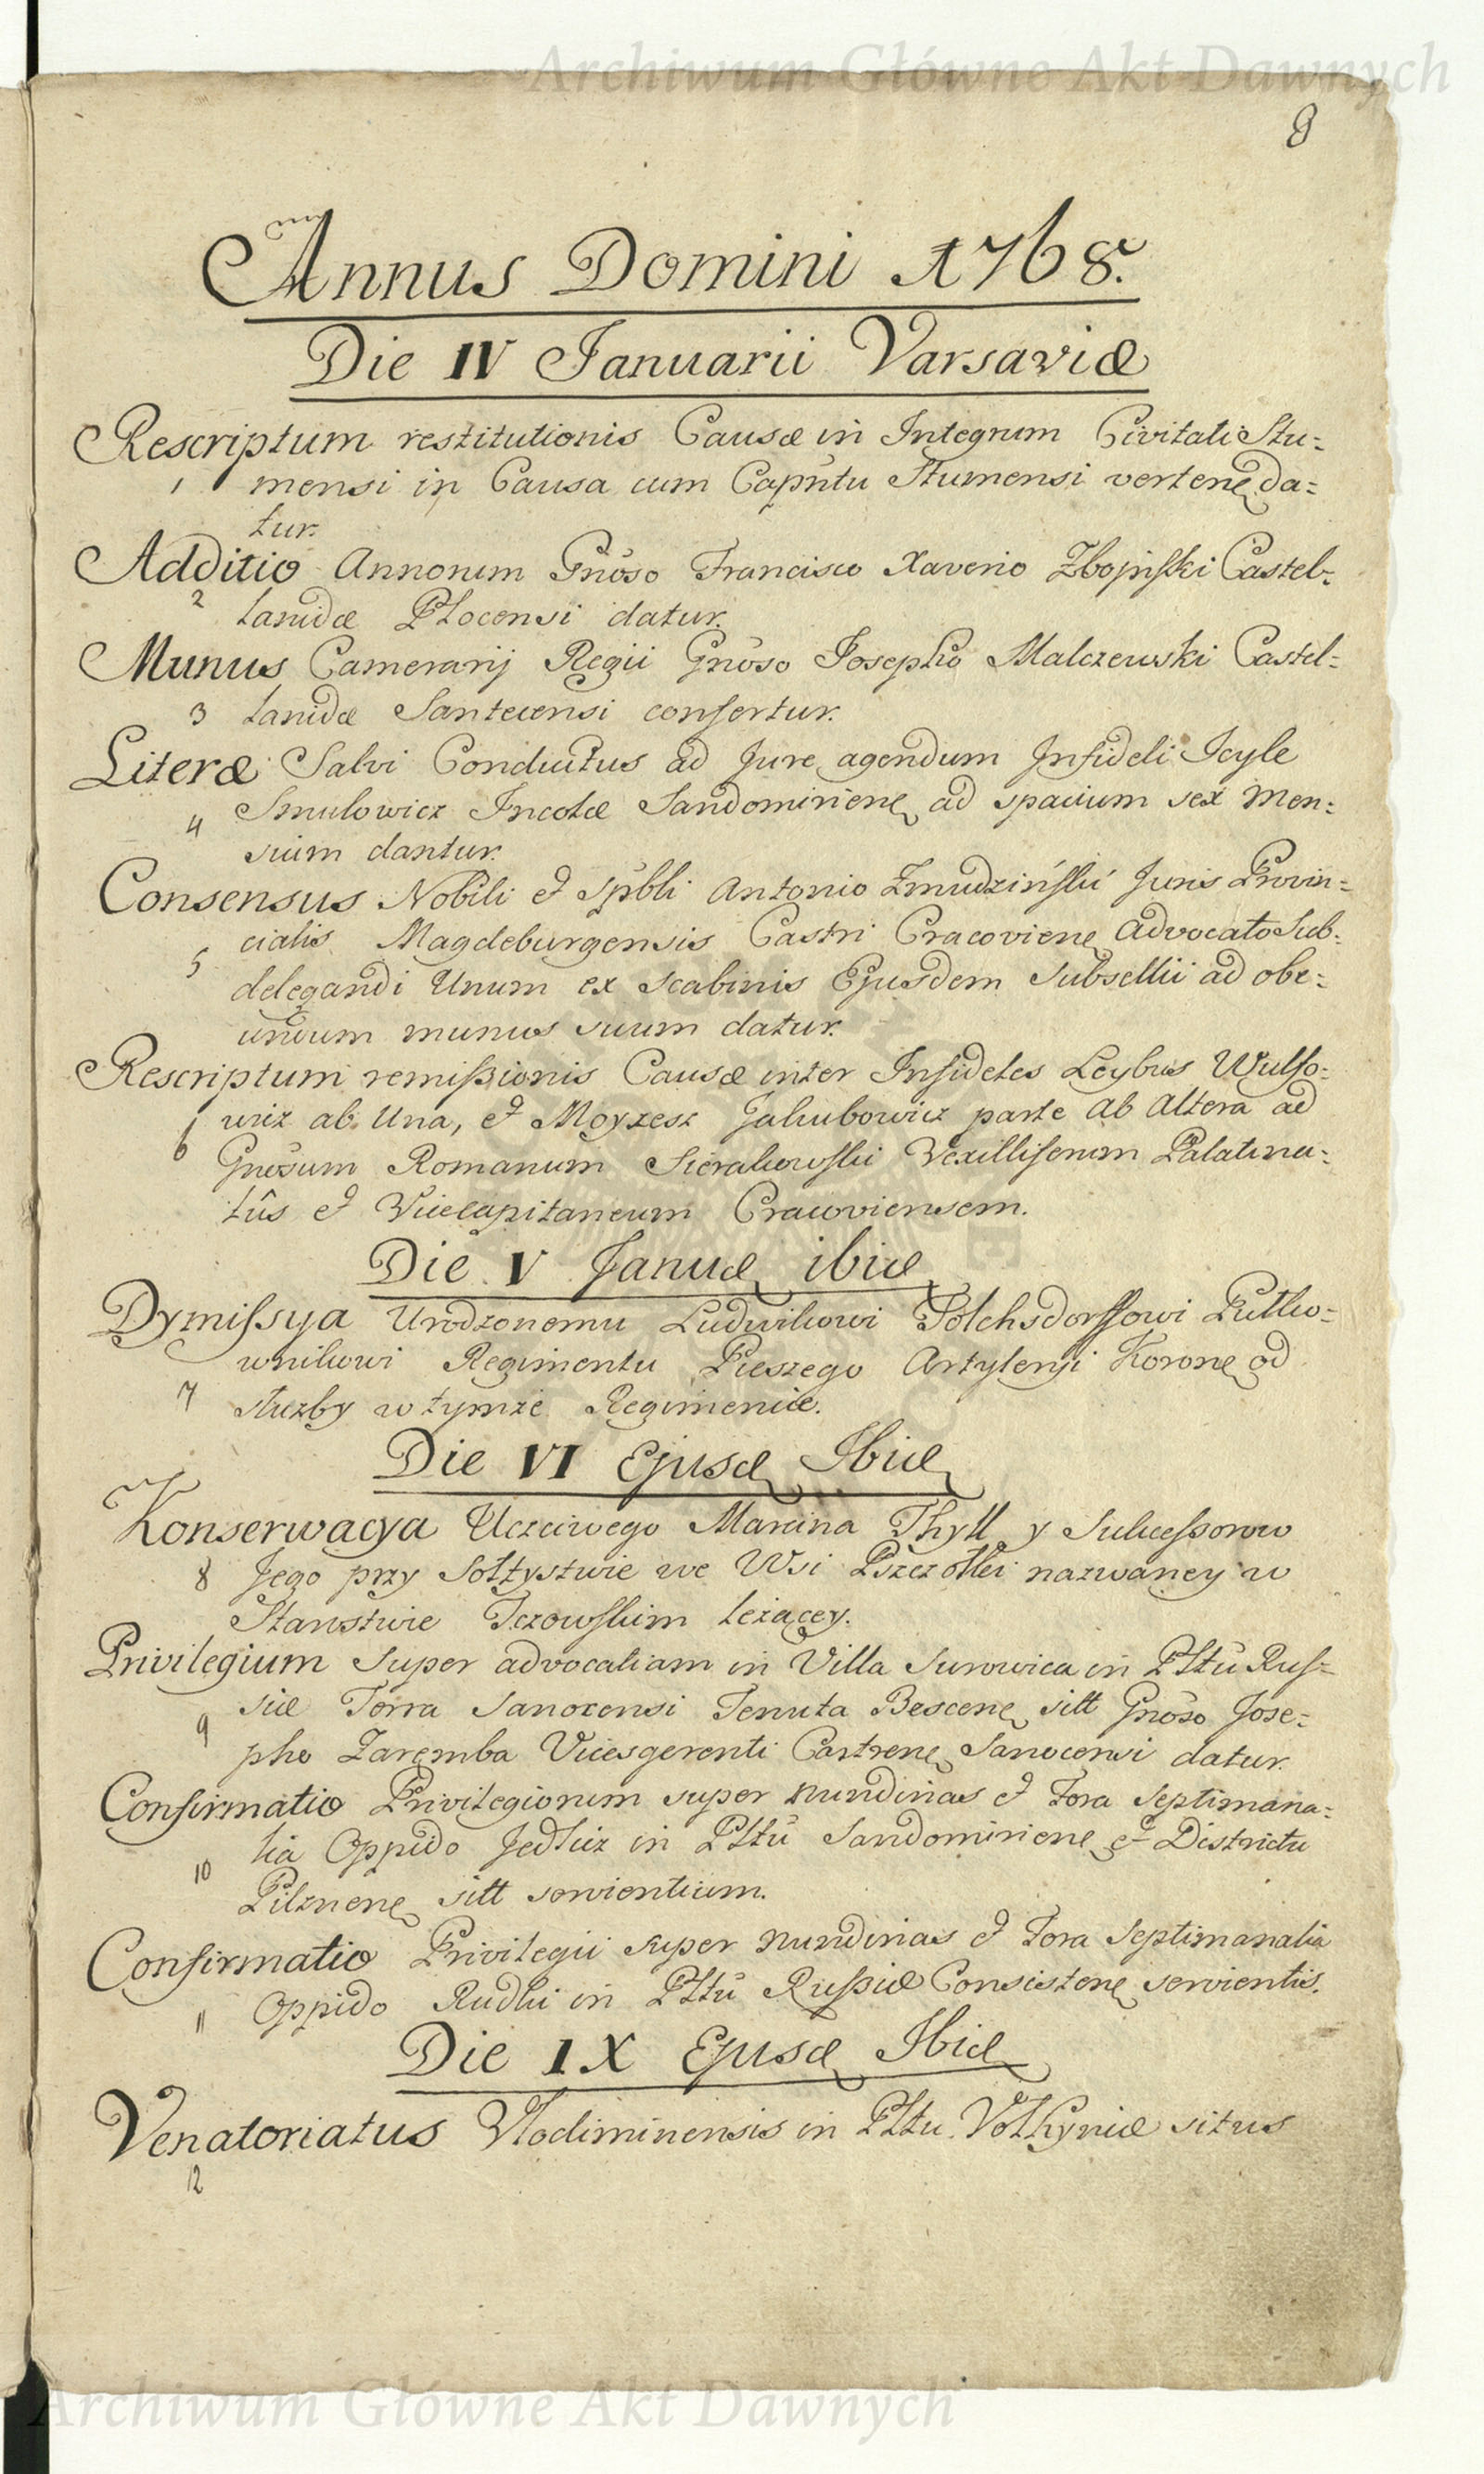 Archiwum Główne Akt Dawnych
8
Annus Domini 1768.
Die IV Januarii Varsaviæ
Rescriptum restitutionis Causæ in Integrum Civitati Stu=
1 mensi in Causa cum Capntu Stumensi vertene da=
tur.
Additio Annorum Gnõso Francisco Xaverio Zboinski Castel=
2 lanidæ Plocensi datur.
Munus Camerarij Regii Gnõso Josepho Malczewski Castel=
3 lanidæ Santecensi confertur.
Literæ Salvi Conductus ad Jure agendum Infideli Icyle
4 Smulowicz Incolæ Sandomiriene ad spacium sex Men=
sium dantur.
Consensus Nobili et Spbli Antonio Zmudziński Juris Provin=
5 cialis Magdeburgensis Castri Cracoviene Advocato Sub=
delegandi Unum ex Scabinis Ejusdem Subsellii ad obe=
undum munus suum datur.
Rescriptum remissionis Causæ inter Infideles Leybus Wulfo=
6 wicz ab Una, et Moyzesz Jakubowicz parte ab Altera ad
Gnõsum Romanum Sierakowski Vexilliferum Palatina=
tûs et Vicecapitaneum Cracoviensem.
Die V Januæ ibidæ
Dymissya Urodzonemu Ludwikowi Polchsdorffowi Pułko=
7 wnikowi Regimentu Pieszego Artyleryi Korone od
służby w tymże Regimencie.
Die VI Ejusd Ibid
Konserwacya Uczciwego Marcina Thyll y Sukcessorow
8 Jego przy Sołtystwie we Wsi Pszczołki nazwaney w
Starostwie Tczowskim leżącey.
Privilegium Super advocatiam in Villa Surowica in Plltũ Rus=
9 siæ Terra Sanocensi Tenuta Bescene sitt Gnõso Jose=
pho Zaremba Vicesgerenti Castrene Sanocensi datur.
Confirmatio Privilegiorum super nundinas et Fora Septimana=
10 lia Oppido Jedlicz in Plltũ Sandomiriene et Districtu
Pilznene sitt servientium.
Confirmatio Privilegii super nundinas et Fora Septimanalia
11 Oppido Rudki in Plltũ Russiæ Consistene servientis.
Die IX Ejusd Ibid
Venatoriatus Wlodimiriensis in Plltu Volhyniæ situs
12
Archiwum Główne Akt Dawnych